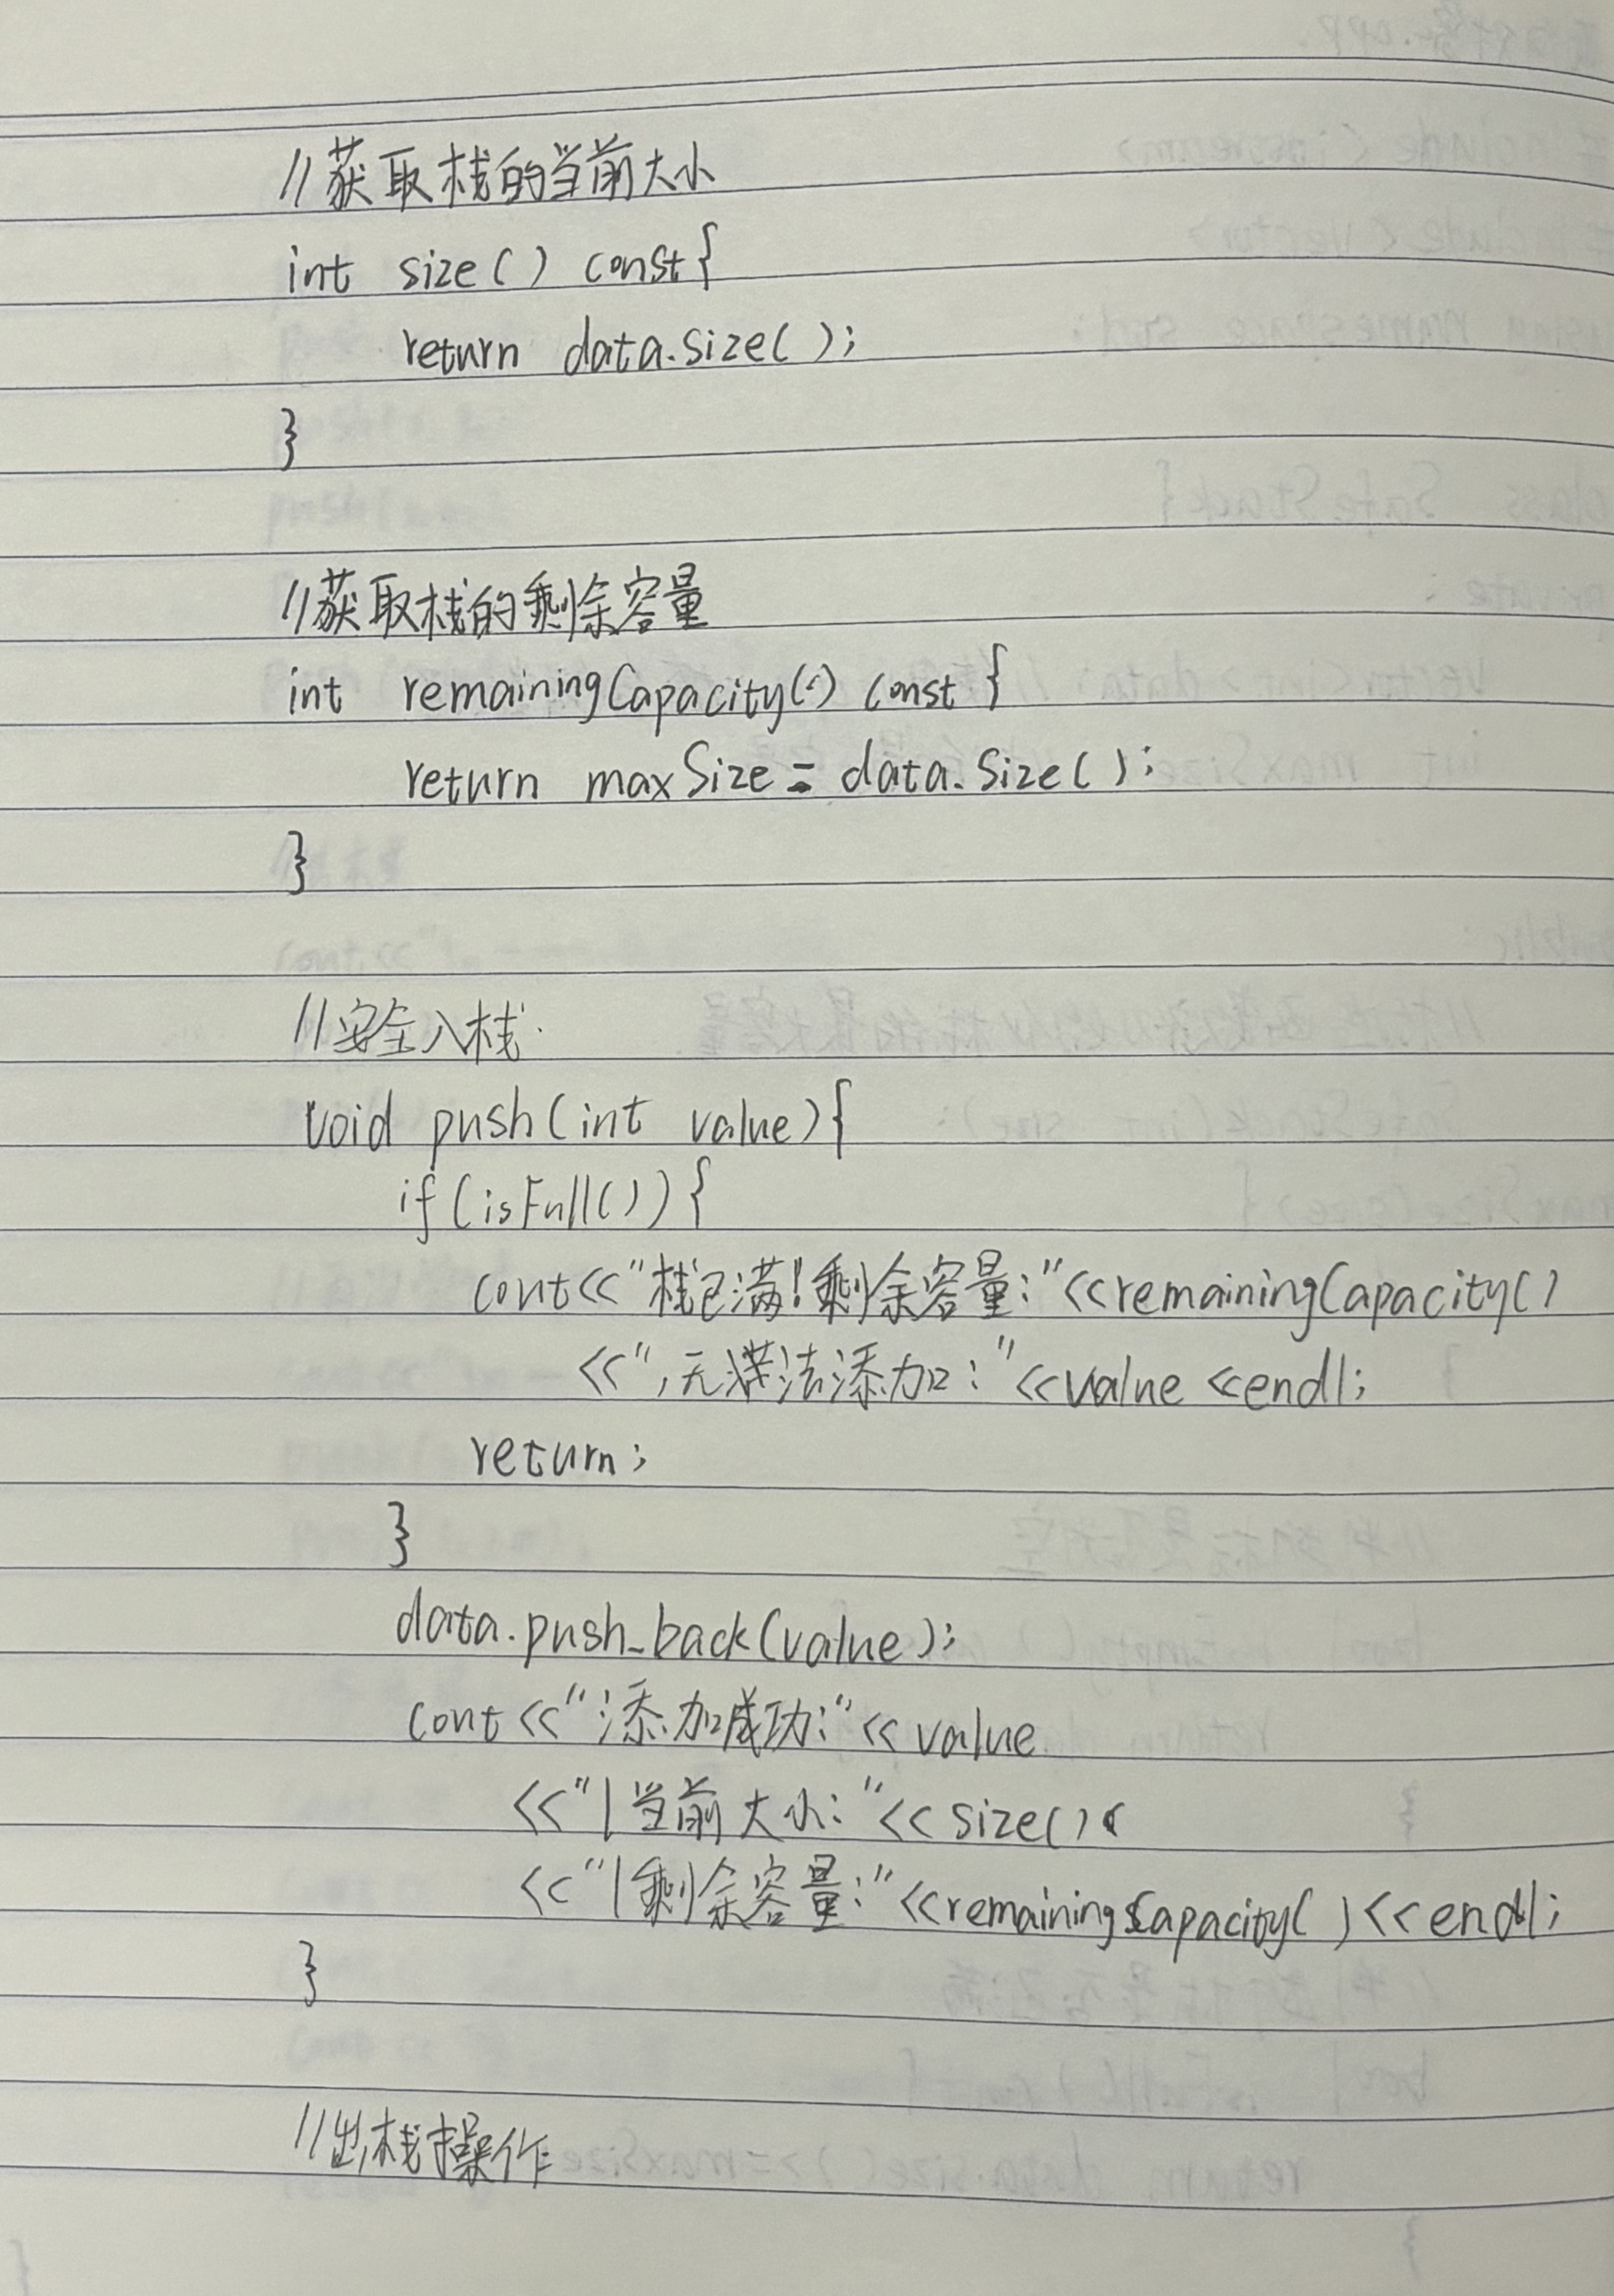 //获取栈的当前大小
int size() const{
return data.size();
}
//获取栈的剩余容量
int remainingCapacity() const{
return maxSize = data.size();
}
//安全入栈.
void push(int value){
if(isFull()){
cout<<"栈已满!剩余容量:"<<remainingCapacity()
<<",无法添加:"<<value<<endl;
return;
}
data.push_back(value);
cout<<"添加成功:"<<value
<<"|当前大小:"<<size()
<<"|剩余容量:"<<remainingCapacity()<<endl;
}
//出栈操作